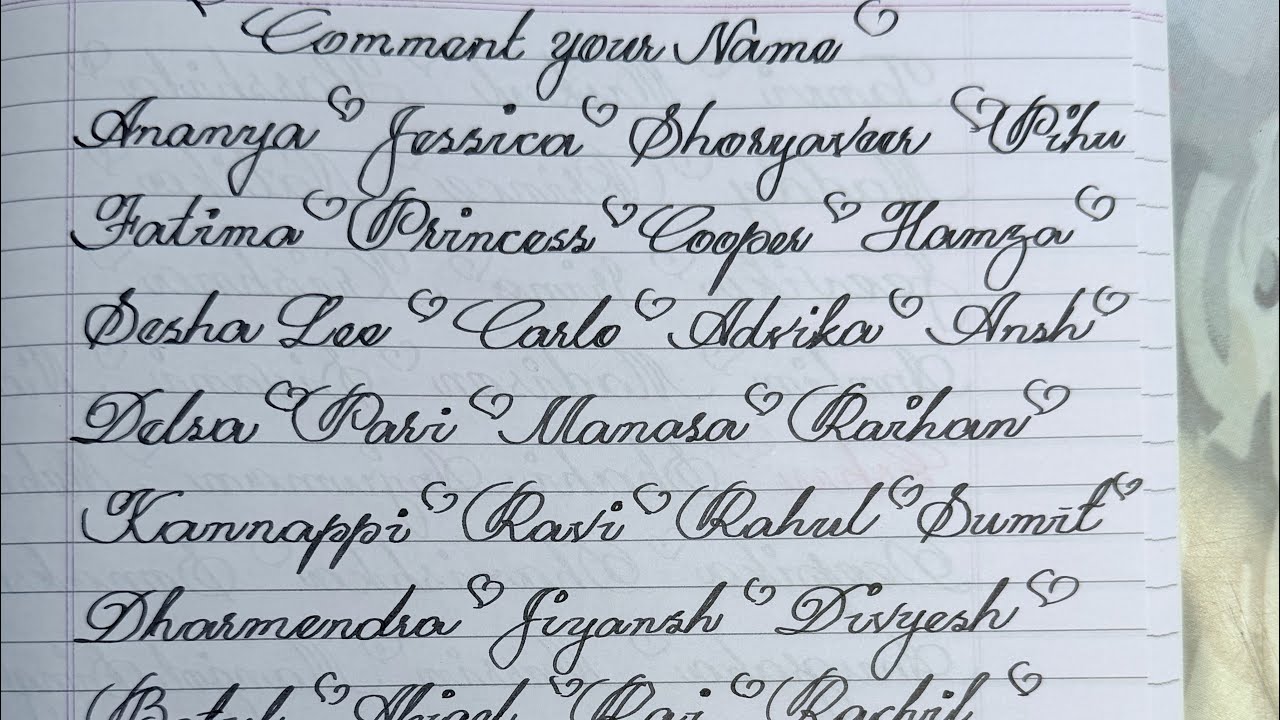 Comment your Name
Ananya Jessica Shoryaveer Pihu
Fatima Princess Cooper Hamza
Sesha Lee Carlo Advika Ansh
Delsa Pari Manasa Raihan
Kannappi Ravi Rahul Sumit
Dharmendra Jiyansh Divyesh